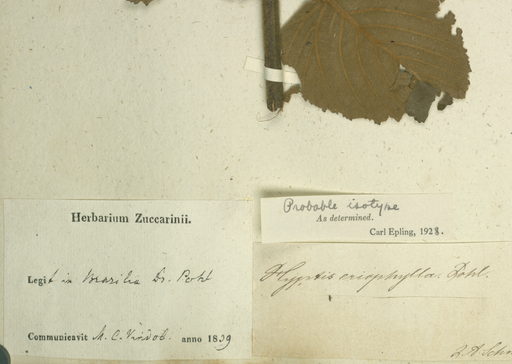 Herbarium Zuccarinii.
Legit in Brasilia Dr. Pohl
Communicavit M. C. Vindob. anno 1839
Probable isotype
As determined.
Carl Epling, 1928.
Hyptis eriophylla. Pohl.